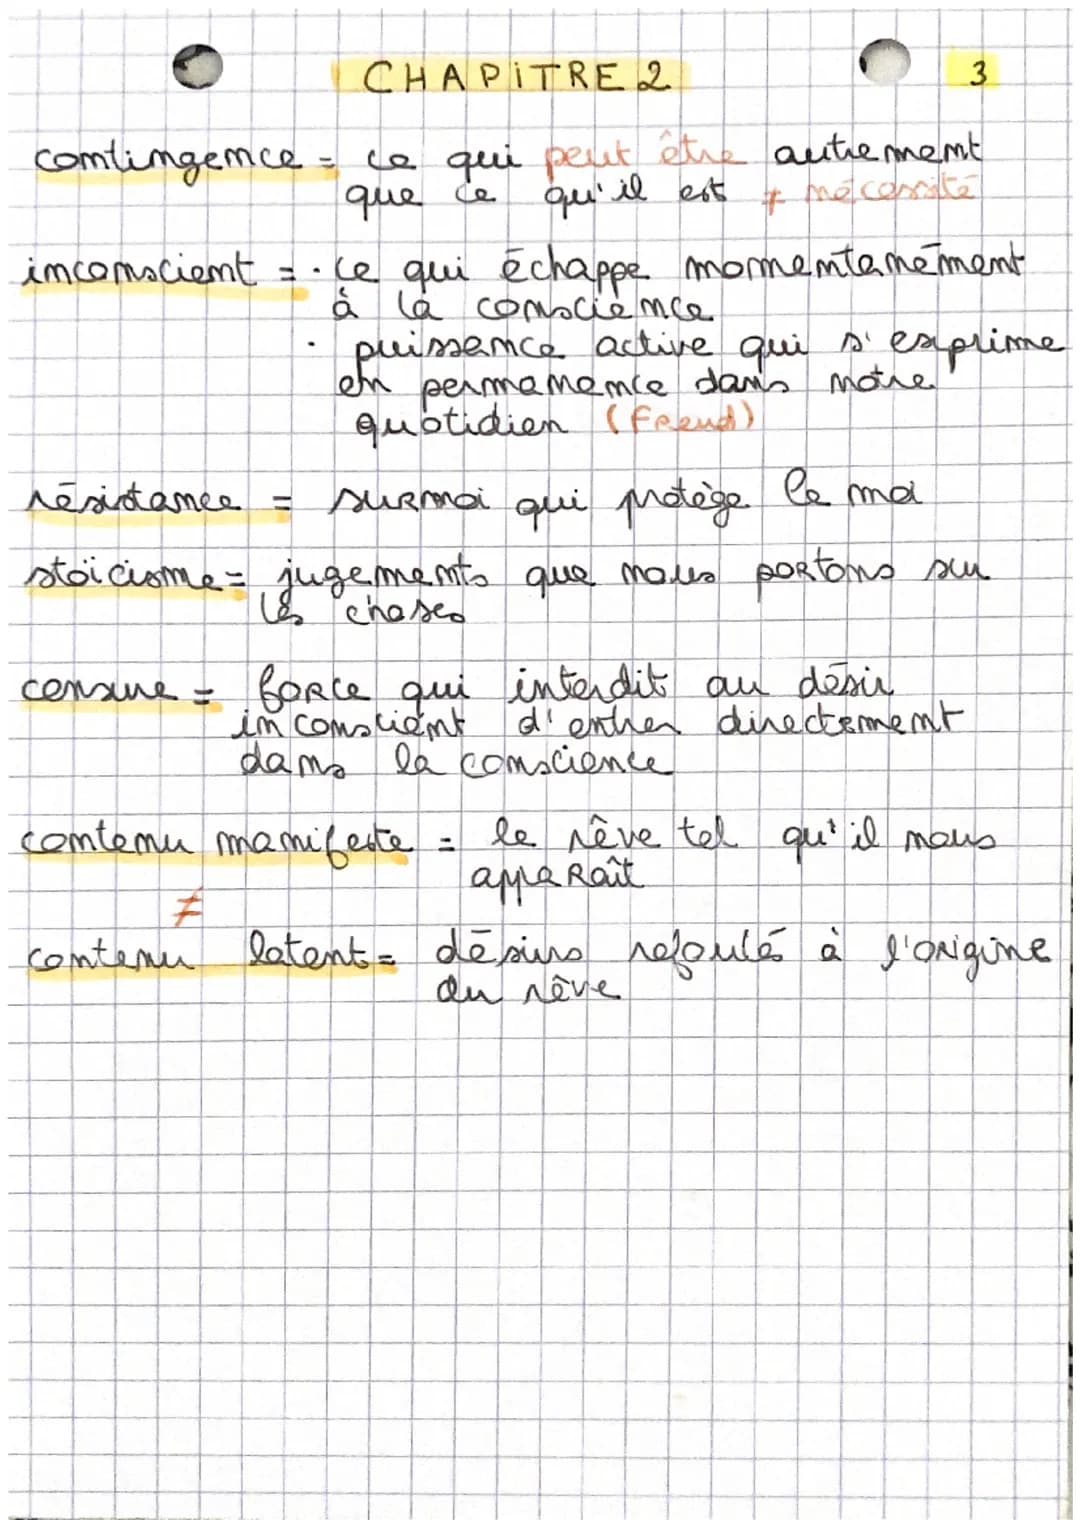 CHAPITRE 2
3
contingence = ce qui peut être autrement
que ce qu'il est ≠ nécessité
inconscient = · ce qui échappe momentanément
à la conscience
· puissance active qui s'exprime
en permanence dans notre
quotidien (Freud)
résistance = surmoi qui protège le moi
stoïcisme = jugements que nous portons sur
les choses
censure = force qui interdit au désir
inconscient d'entrer directement
dans la conscience
contenu manifeste = le rêve tel qu'il nous
apparaît
≠
contenu latent = désirs refoulés à l'origine
du rêve